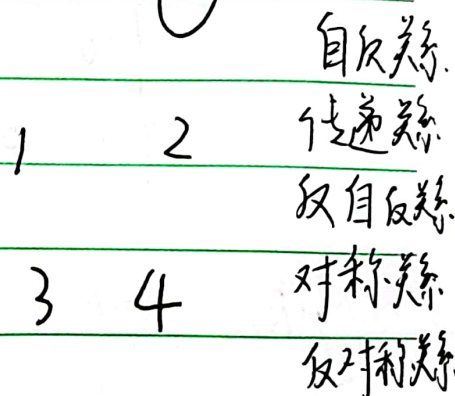 自反关系.
1 2 传递关系
反自反关系
3 4 对称关系
反对称关系